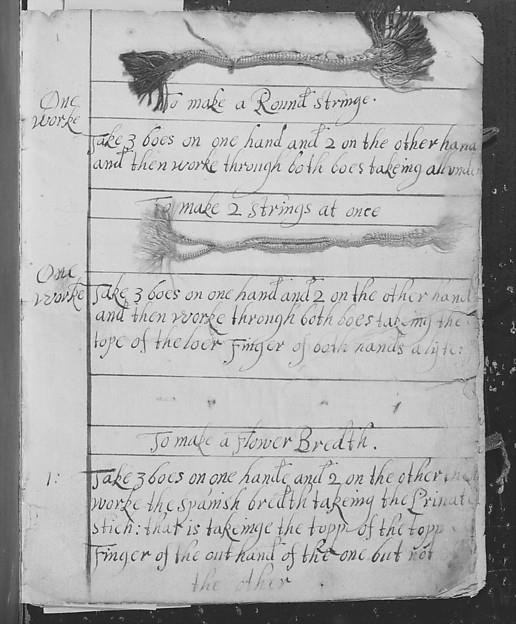 To make a Round stringe.
One
worke
Take 3 boes on one hand and 2 on the other hand
and then worke through both boes takeing all under
To make 2 strings at once
One
worke
Take 3 boes on one hand and 2 on the other hand
and then worke through both boes takeing the
tope of the loer Finger of both hands alyke:
To make a Flower Bredth.
1:
Take 3 boes on one hande and 2 on the other
worke the spanish bredth takeing the
stich: that is takeinge the topp of the topp
Finger of the out hand of the one but not
the other